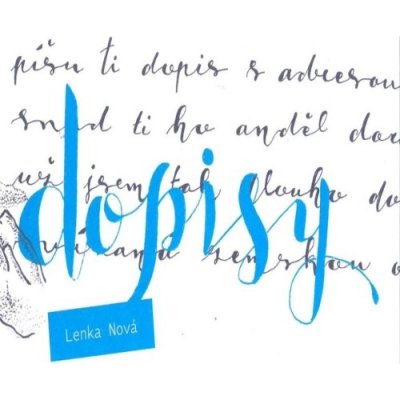 píšu ti dopis s adresou
snad ti ho anděl dou
už jsem tak dlouho do
dopisy
zemskou
Lenka Nová